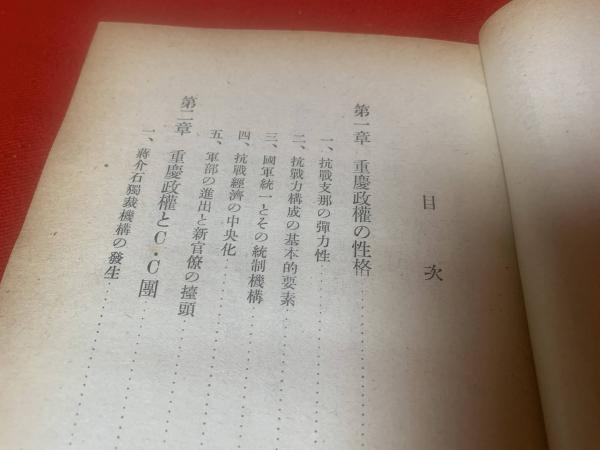 目次
第一章 重慶政權の性格
一、抗戰支那の彈力性
二、抗戰力構成の基本的要素
三、國軍統一とその統制機構
四、抗戰經濟の中央化
五、軍部の進出と新官僚の擡頭
第二章 重慶政權とC・C團
一、蔣介石獨裁機構の發生